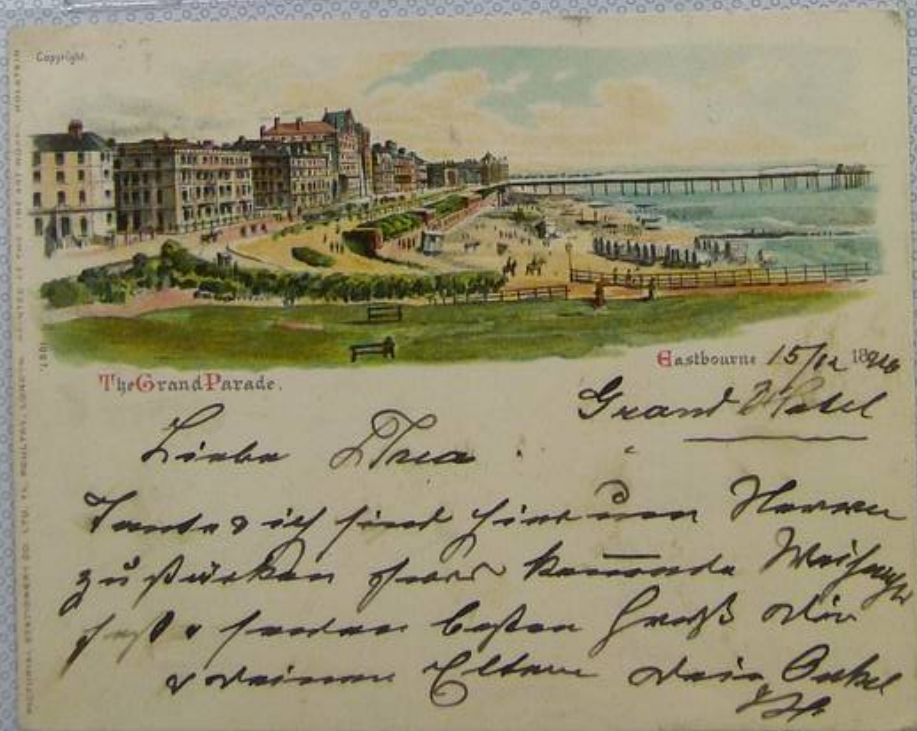 Copyright.
The Grand Parade.
Eastbourne 15/12 18
Grand Hotel
Liebe Thea
Tante & ich sind hier um Nerven
zu stärken fürs kommende Weihnachts
fest & senden besten Gruß Dir
& Deinen Eltern Dein Onkel
PICTORIAL STATIONERY CO. LTD. LONDON. PRINTED AT THE FINE ART WORKS, HOLSTEIN